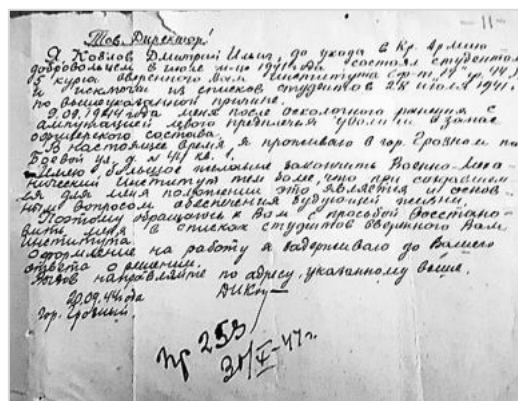 11
Тов. Директор!
Я Козлов Дмитрий Ильич, до ухода в Кр. Армию
добровольцем в июле м-це 1941 года состоял студентом
5 курса вверенного Вам института
и исключен из списков студентов 2 июля 1941 г.
по вышеуказанной причине.
9.09.1944 года меня после осколочного ранения с
ампутацией левого предплечья уволили в запас
офицерского состава.
В настоящее время, я проживаю в гор. Грозном по
Боевой ул. д. № 41 кв. 1.
Имею большое желание закончить Военно-Меха-
нический Институт тем более, что при создавшем-
ся для меня положении это является и основ-
ным вопросом обеспечения будущей жизни.
Поэтому обращаюсь к Вам с просьбой восстано-
вить меня в списках студентов вверенного Вам
института.
Оформление на работу я задерживаю до Вашего
ответа о решении.
Вызов направляйте по адресу, указанному выше.
20.09.44 года
гор. Грозный.
Пр 253
31/V-47 г.